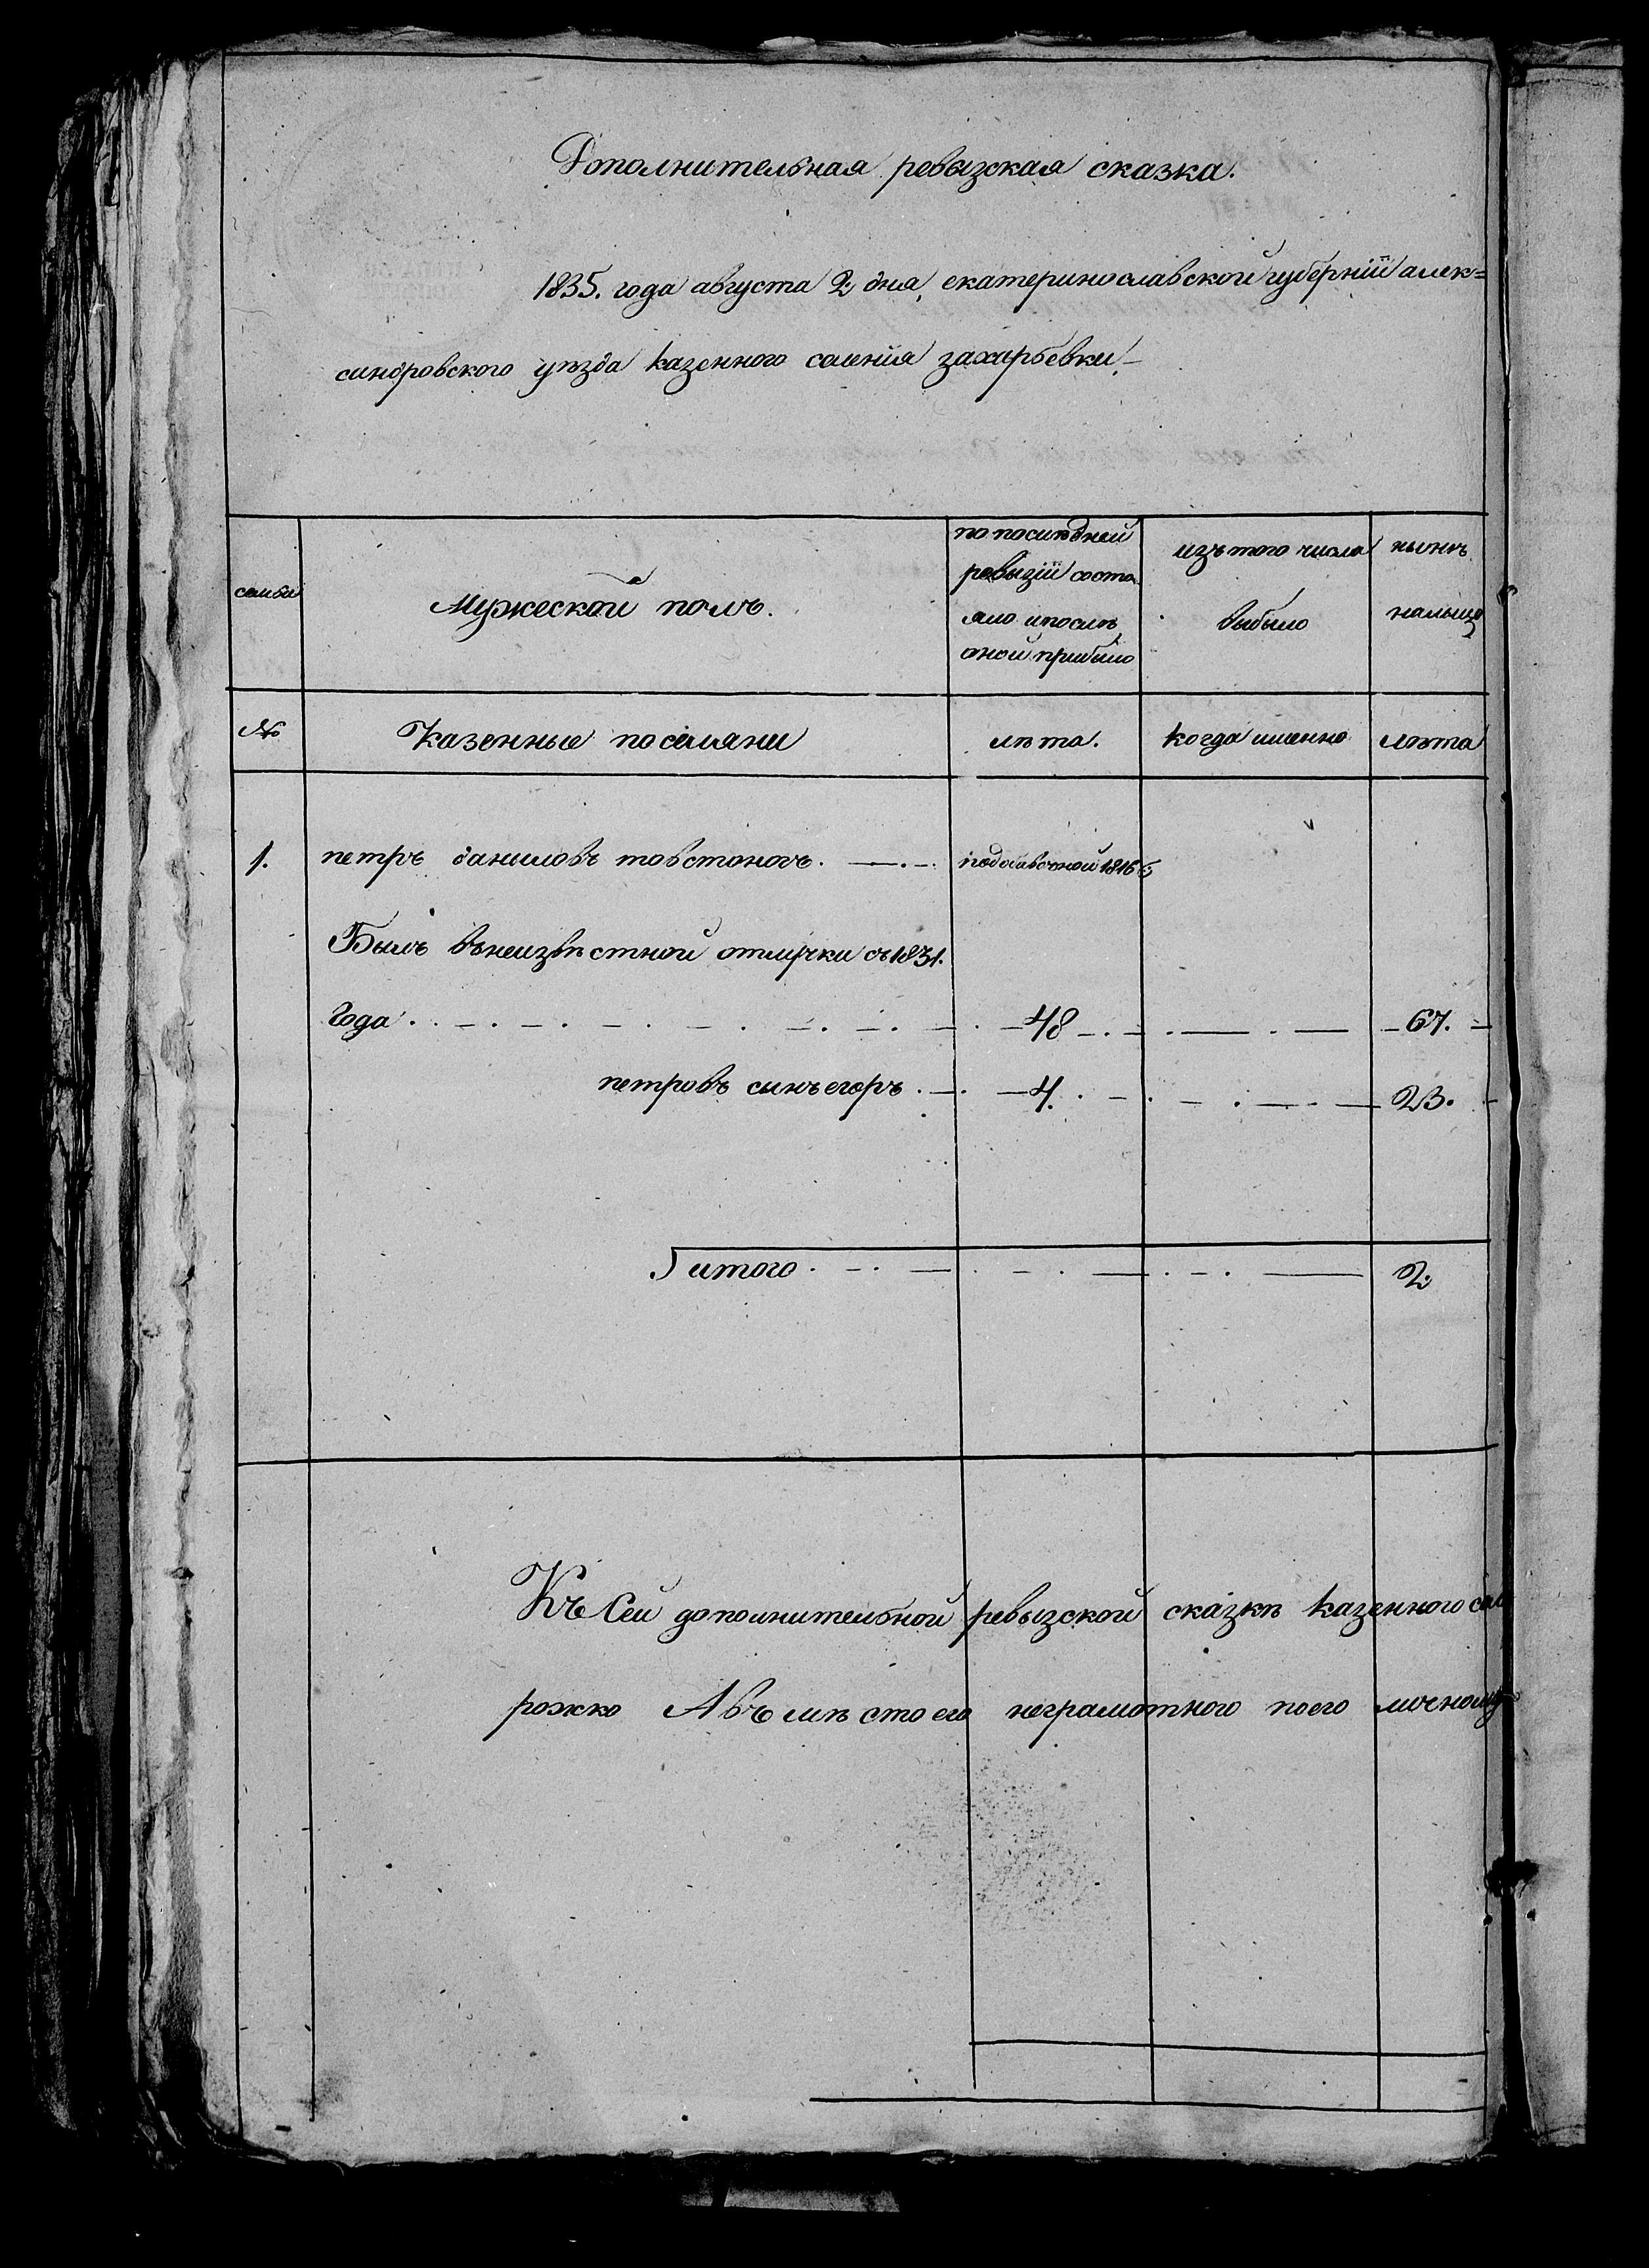 Дополнительная ревызская сказка.
1835. года августа 2 дня, екатеринославской губерніи алек=
синдровского уѣзда казенного селенія захарьевки,-
семьи
Мужеской полъ.
по послѣдней
ревызіи состо
яло ипослѣ
оной прибыло
изътого числа
выбыло
нынѣ
налыцо
№
Казенные поселяни
лѣта.
когда именно
лѣта
1. петръ даныловъ товстоногъ. подобавочной 1816
Былъ вънеизвѣстной отлучки съ1831.
года 48 67.
петровъ сынъегоръ 4. 23.
итого 2
Къ Сей дополнительной ревызской сказкѣ казенного сел
рожко Авъмѣсто его неграмотного поего личному